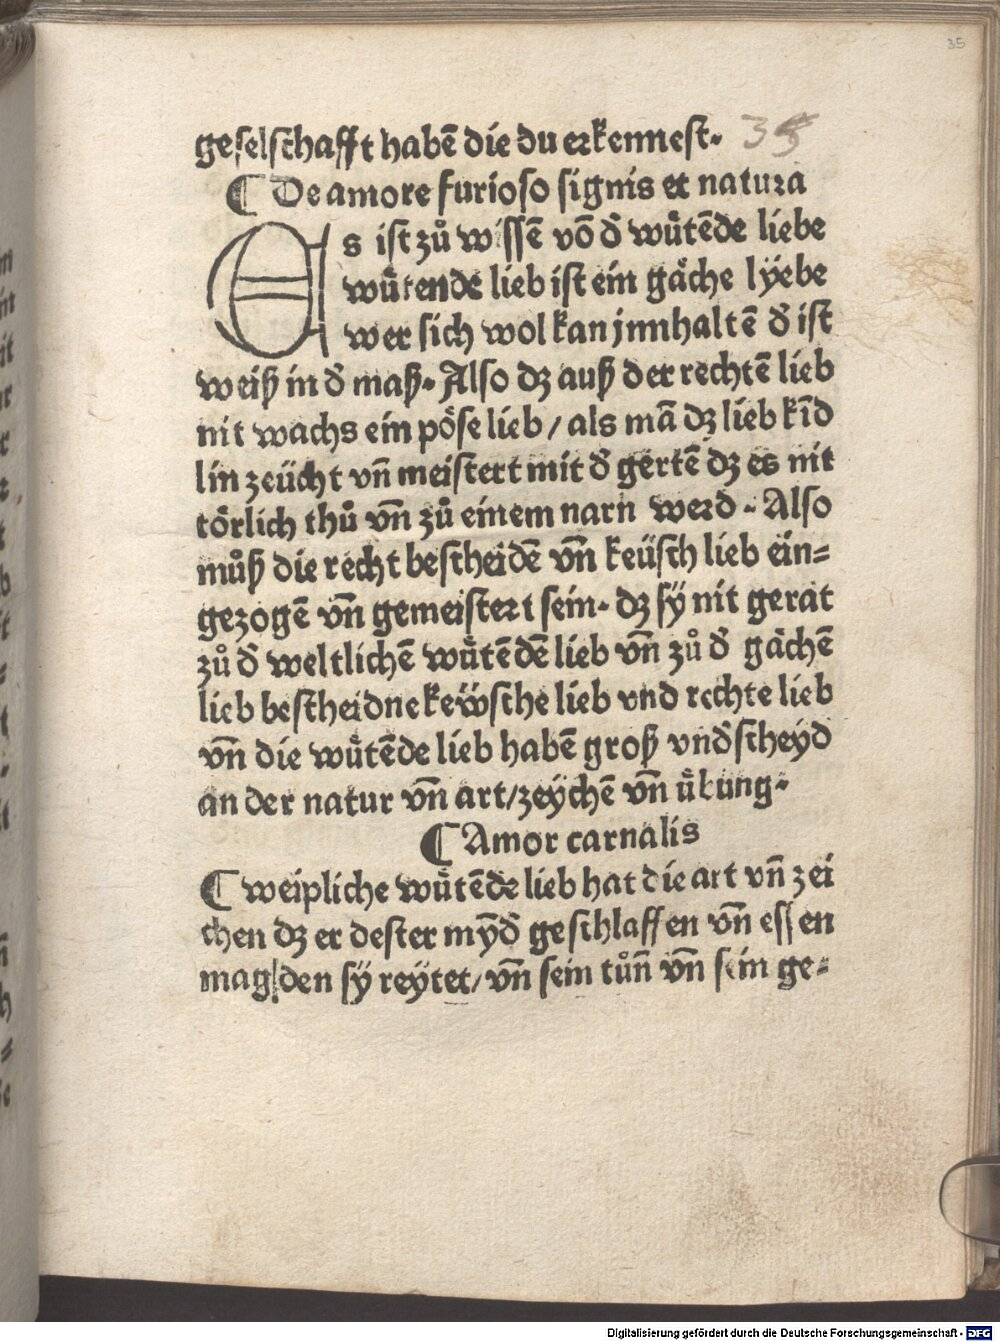 35
geselschafft habē die du erkennest.
35
¶ De amore furioso signis et natura
Es ist zů wissē vō d̄ wůtēde liebe
wůtende lieb ist ein gäche lÿebe
wer sich wol kan jnnhaltē d̄ ist
weiß in d̄ maß. Also dꝫ auß der rechtē lieb
nit wachs ein pöse lieb / als mā dꝫ lieb kīd
lin zeücht vn̄ meistert mit d̄ gertē dꝫ es nit
törlich thů vn̄ zů einem narn werd. Also
můß die recht bescheidē vn̄ keüsch lieb ein=
gezogē vn̄ gemeistert sein. dꝫ sÿ nit gerat
zů d̄ weltlichē wůtēdē lieb vn̄ zů d̄ gächē
lieb bescheidne keẅsche lieb vnd rechte lieb
vn̄ die wůtēde lieb habē groß vnd̄scheyd
an der natur vn̄ art/zeÿchē vn̄ ůbung.
¶ Amor carnalis
¶ weipliche wůtēde lieb hat die art vn̄ zei
chen dꝫ er dester mȳd̄ geschlaffen vn̄ essen
mag/den sÿ reÿtet/ vn̄ sein tůn̄ vn̄ sein ge=
Digitalisierung gefördert durch die Deutsche Forschungsgemeinschaft - DFG